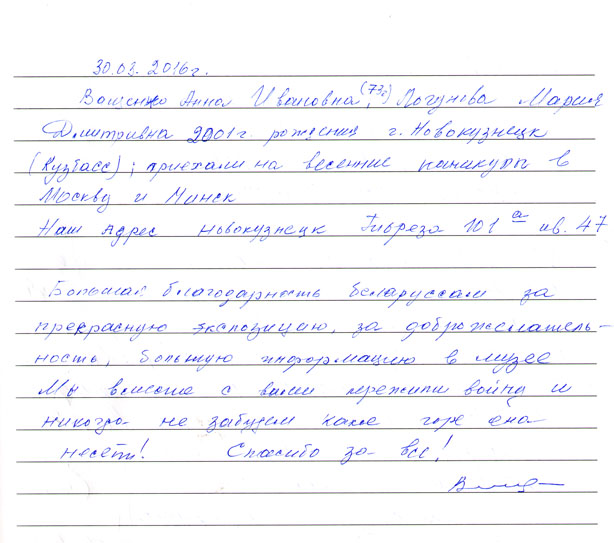 30.03. 2016г.
Ващенко Анна Ивановна (73г), Логунова Мария
Дмитриевна 2001г. рождения г. Новокузнецк
(Кузбасс); приехали на весенние каникулы в
Москву и Минск
Наш Адрес Новокузнецк Тореза 101 а кв. 47
Большая благодарность беларуссам за
прекрасную экспозицию, за доброжелатель-
ность, большую информацию в музее
Мы вместе с вами пережили войну и
никогда не забудем какое горе она
несёт! Спасибо за все!